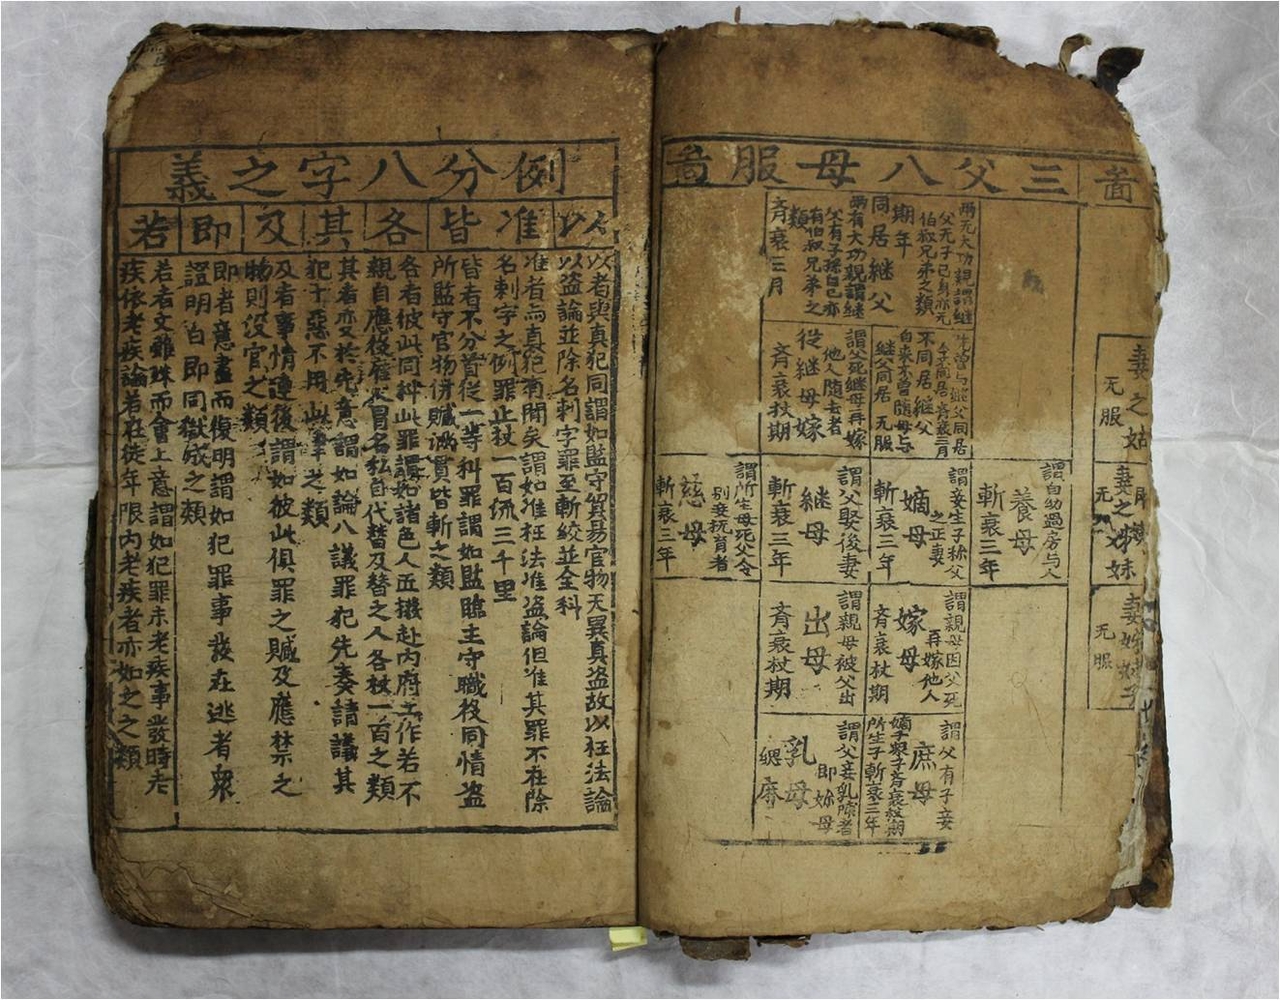 啚
妻之姑
无服
妻之姊妹
无服
无服
三父八母服啚
兩无大功親謂継
父无子己身亦无
伯叔兄弟之類
期年
同居継父
兩有大功親謂継
父有子孫自己亦
有伯叔兄弟之
類
齊衰三月
先曽与継父同居
今不同居齊衰三月
不同居継父
自來不曽随母与
継父同居无服
謂父死継母再嫁
他人随去者
従継母嫁
齊衰杖期
謂自幼過房与人
養母
斬衰三年
謂妾生子称父
之正妻
嫡母
斬衰三年
謂父娶後妻
継母
斬衰三年
謂所生母死父令
別妾抚育者
慈母
斬衰三年
謂親母因父死
再嫁他人
嫁母
齊衰杖期
謂親母被父出
出母
齊衰杖期
謂父有子妾
庶母
嫡子衆子齊衰杖期
所生子斬衰三年
謂父妾乳哺者
即妳母
乳母
緦麻
例分八字之義
以
准
皆
各
其
及
即
若
以者與真犯同謂如監守貿易官物无異真盗故以枉法論
以盗論並除名刺字罪至斬絞並全科
准者与真犯有間矣謂如准枉法准盗論但准其罪不在除
名刺字之例罪止杖一百流三千里
皆者不分首従一等科罪謂如監臨主守職役同情盗
所監守官物併贜满貫皆斬之類
各者彼此同科此罪謂如諸色人匠撥赴内府工作若不
親自應役雇人冒名私自代替及替之人各杖一百之類
其者变於先意謂如論八議罪犯先奏請議其
犯十惡不用此律之類
及者事情連後謂如彼此俱罪之贓及應禁之
物則没官之類
即者意盡而復明謂如犯罪事發在逃者衆
證明白即同獄成之類
若者文雖殊而會上意謂如犯罪未老疾事發時老
疾依老疾論若在徒年限内老疾者亦如之之類